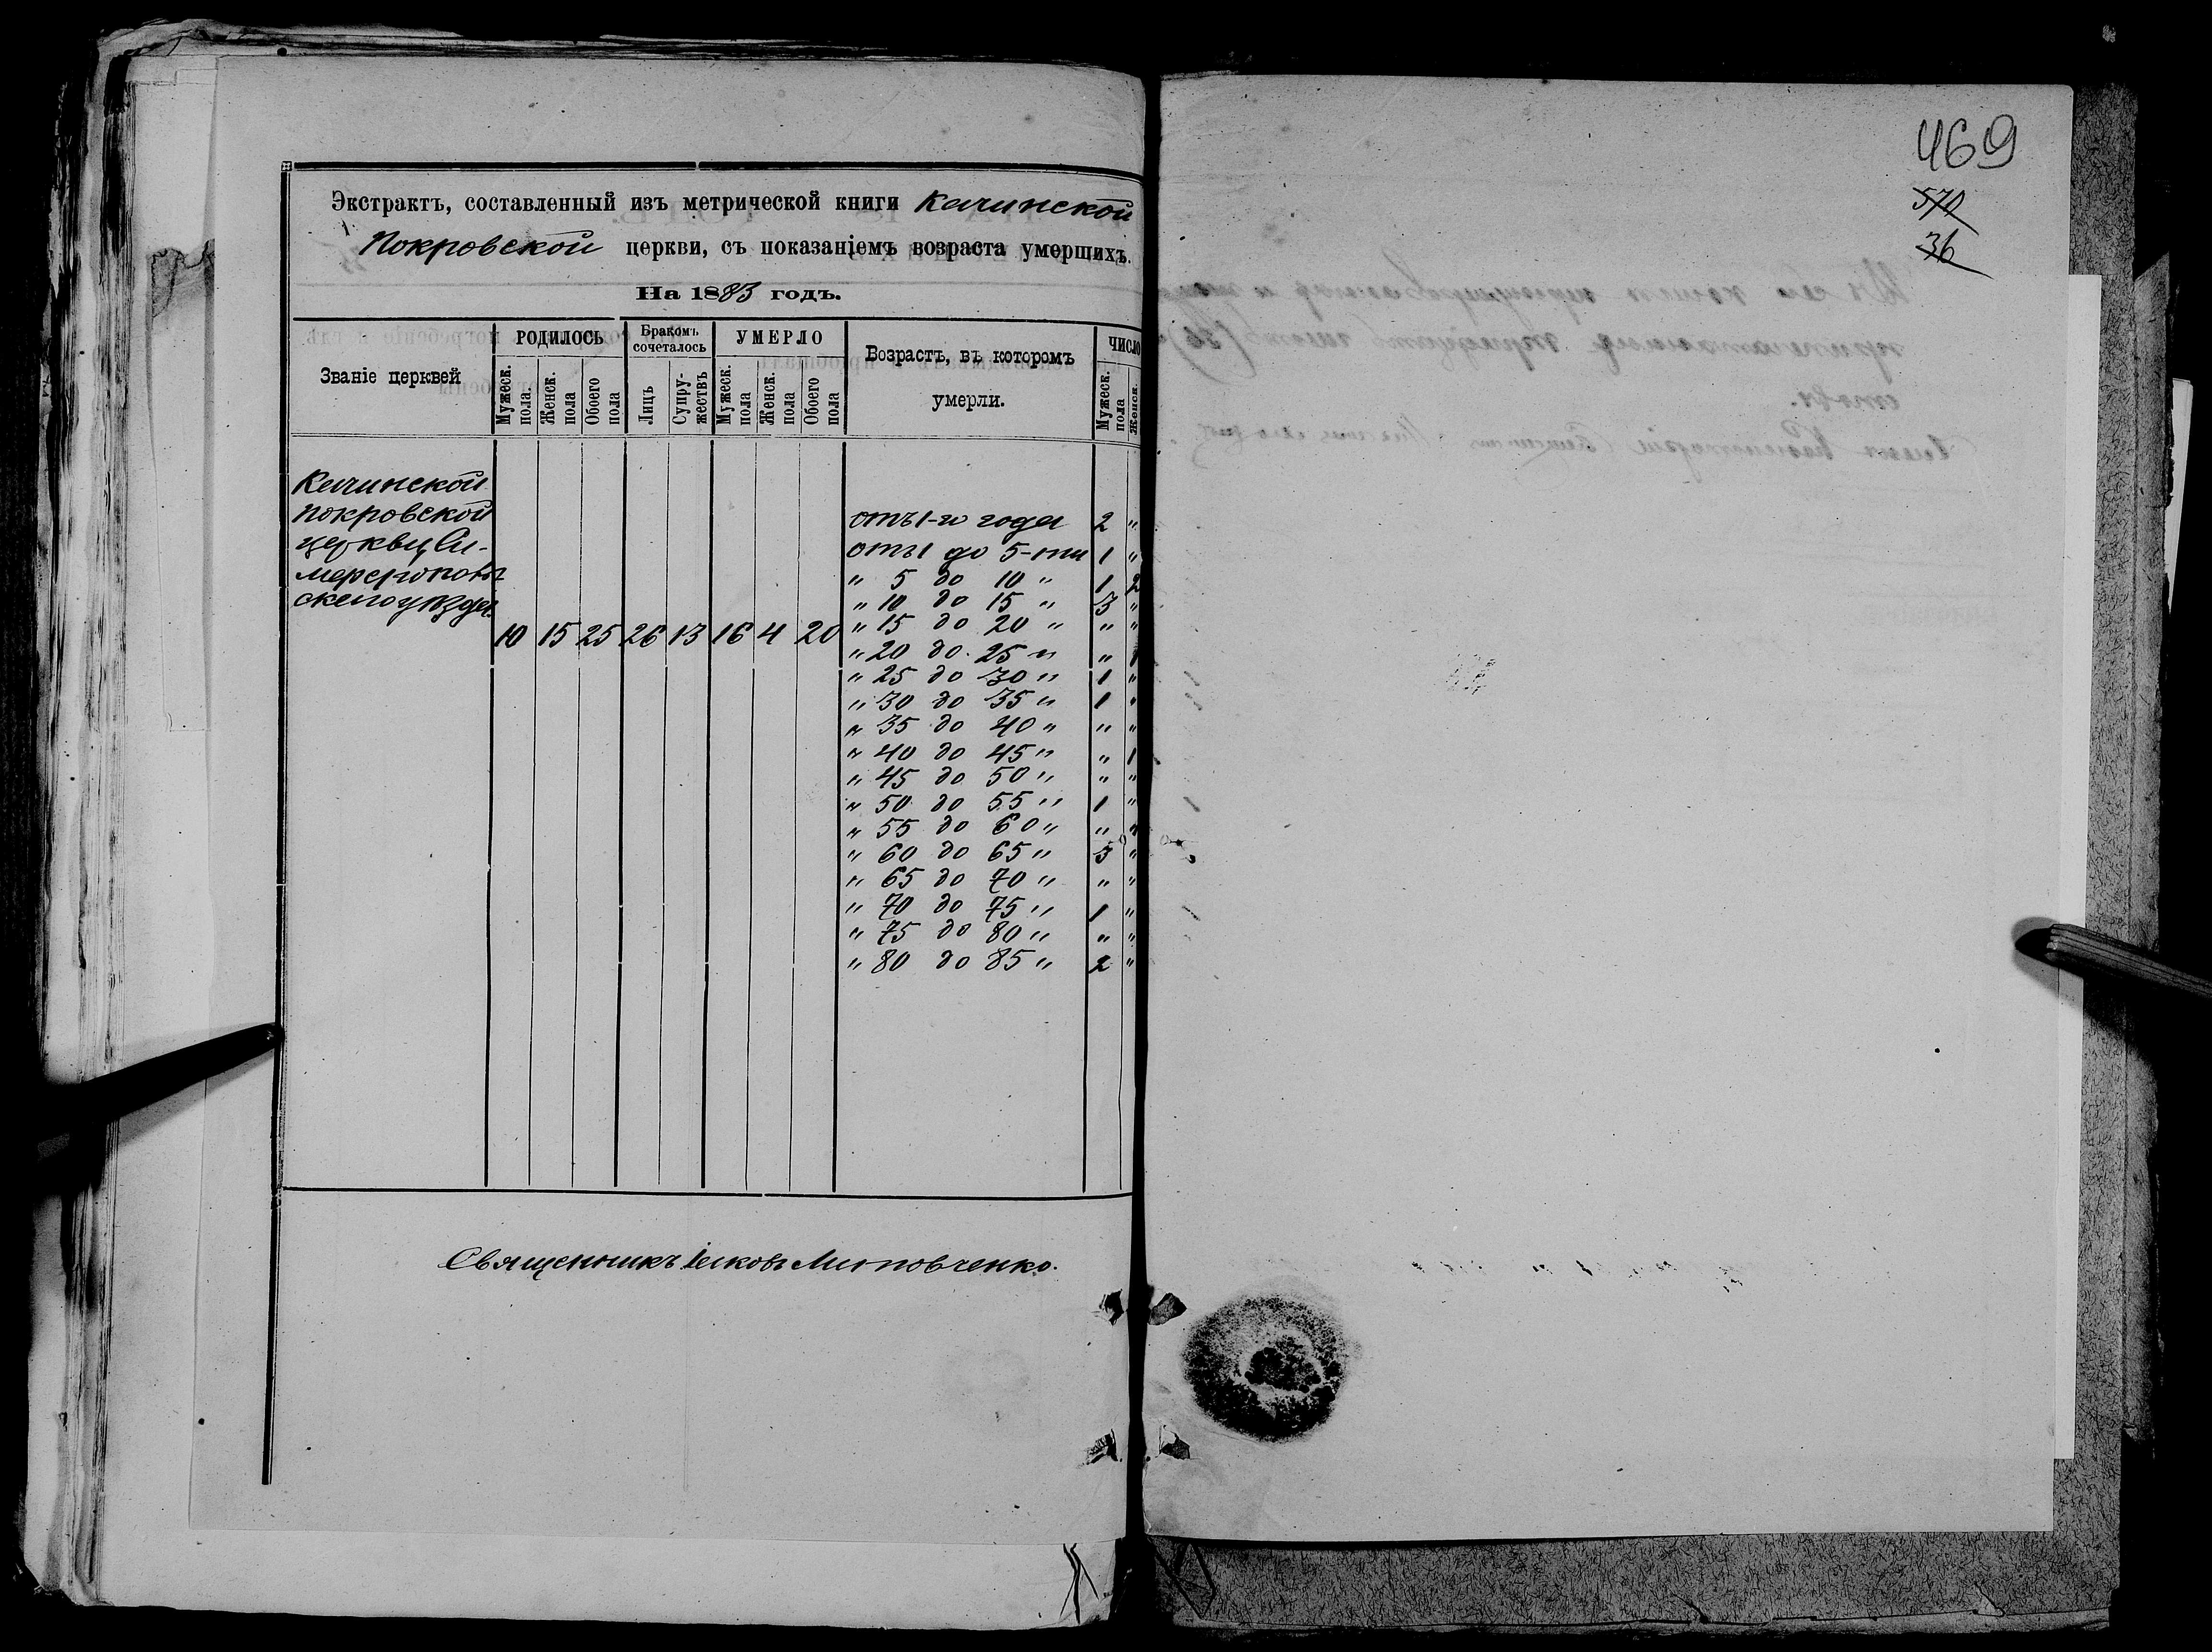 Экстрактъ, составленный изъ метрической книги Качинской
Покровской церкви, съ показаніемъ возраста умершихъ.
На 1883 годъ.
Званіе церквей
РОДИЛОСЬ
Мужеск. пола.
Женск. пола
Обоего пола
Бракомъ сочеталось
Лицъ
Супру-жествъ
УМЕРЛО
Мужеск. пола
Женск. пола
Обоего пола
Возрастъ, въ которомъ
умерли.
ЧИСЛО
Мужеск. пола
Женск.
Качинской
Покровской
церкви, Си-
мферополь
скаго уѣзда.
10 15 25 26 13 16 4 20
отъ 1-го года 2 "
отъ 1 до 5-ти 1 "
" 5 до 10 " 1 2
" 10 до 15 " 3 "
" 15 до 20 " " "
" 20 до 25 " " 1
" 25 до 30 " 1 "
" 30 до 35 " 1 "
" 35 до 40 " " "
" 40 до 45 " " 1
" 45 до 50 " " "
" 50 до 55 " 1 "
" 55 до 60 " " "
" 60 до 65 " 3 "
" 65 до 70 " " "
" 70 до 75 " 1 "
" 75 до 80 " " "
" 80 до 85 " 2 "
Священникъ Іаковъ
469
570
36